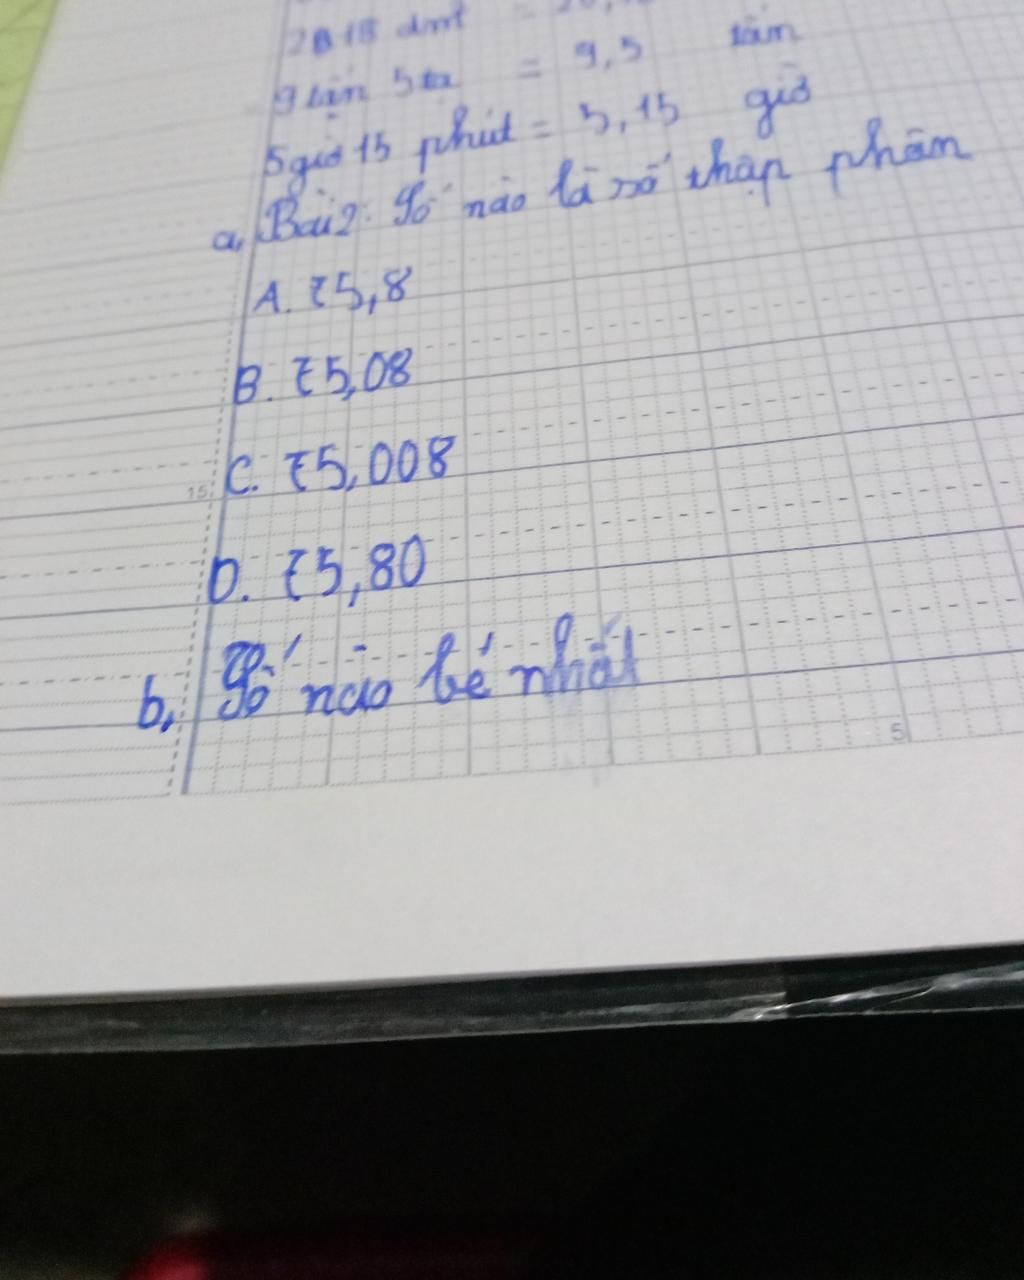 2018 dm² =
9 tấn 5 tạ = 9,5 tấn
5 giờ 15 phút = 5,15 giờ
a, Bài 2: Số nào là số thập phân
A. 75,8
B. 75,08
15 C. 75,008
D. 75,80
b, Số nào bé nhất
5